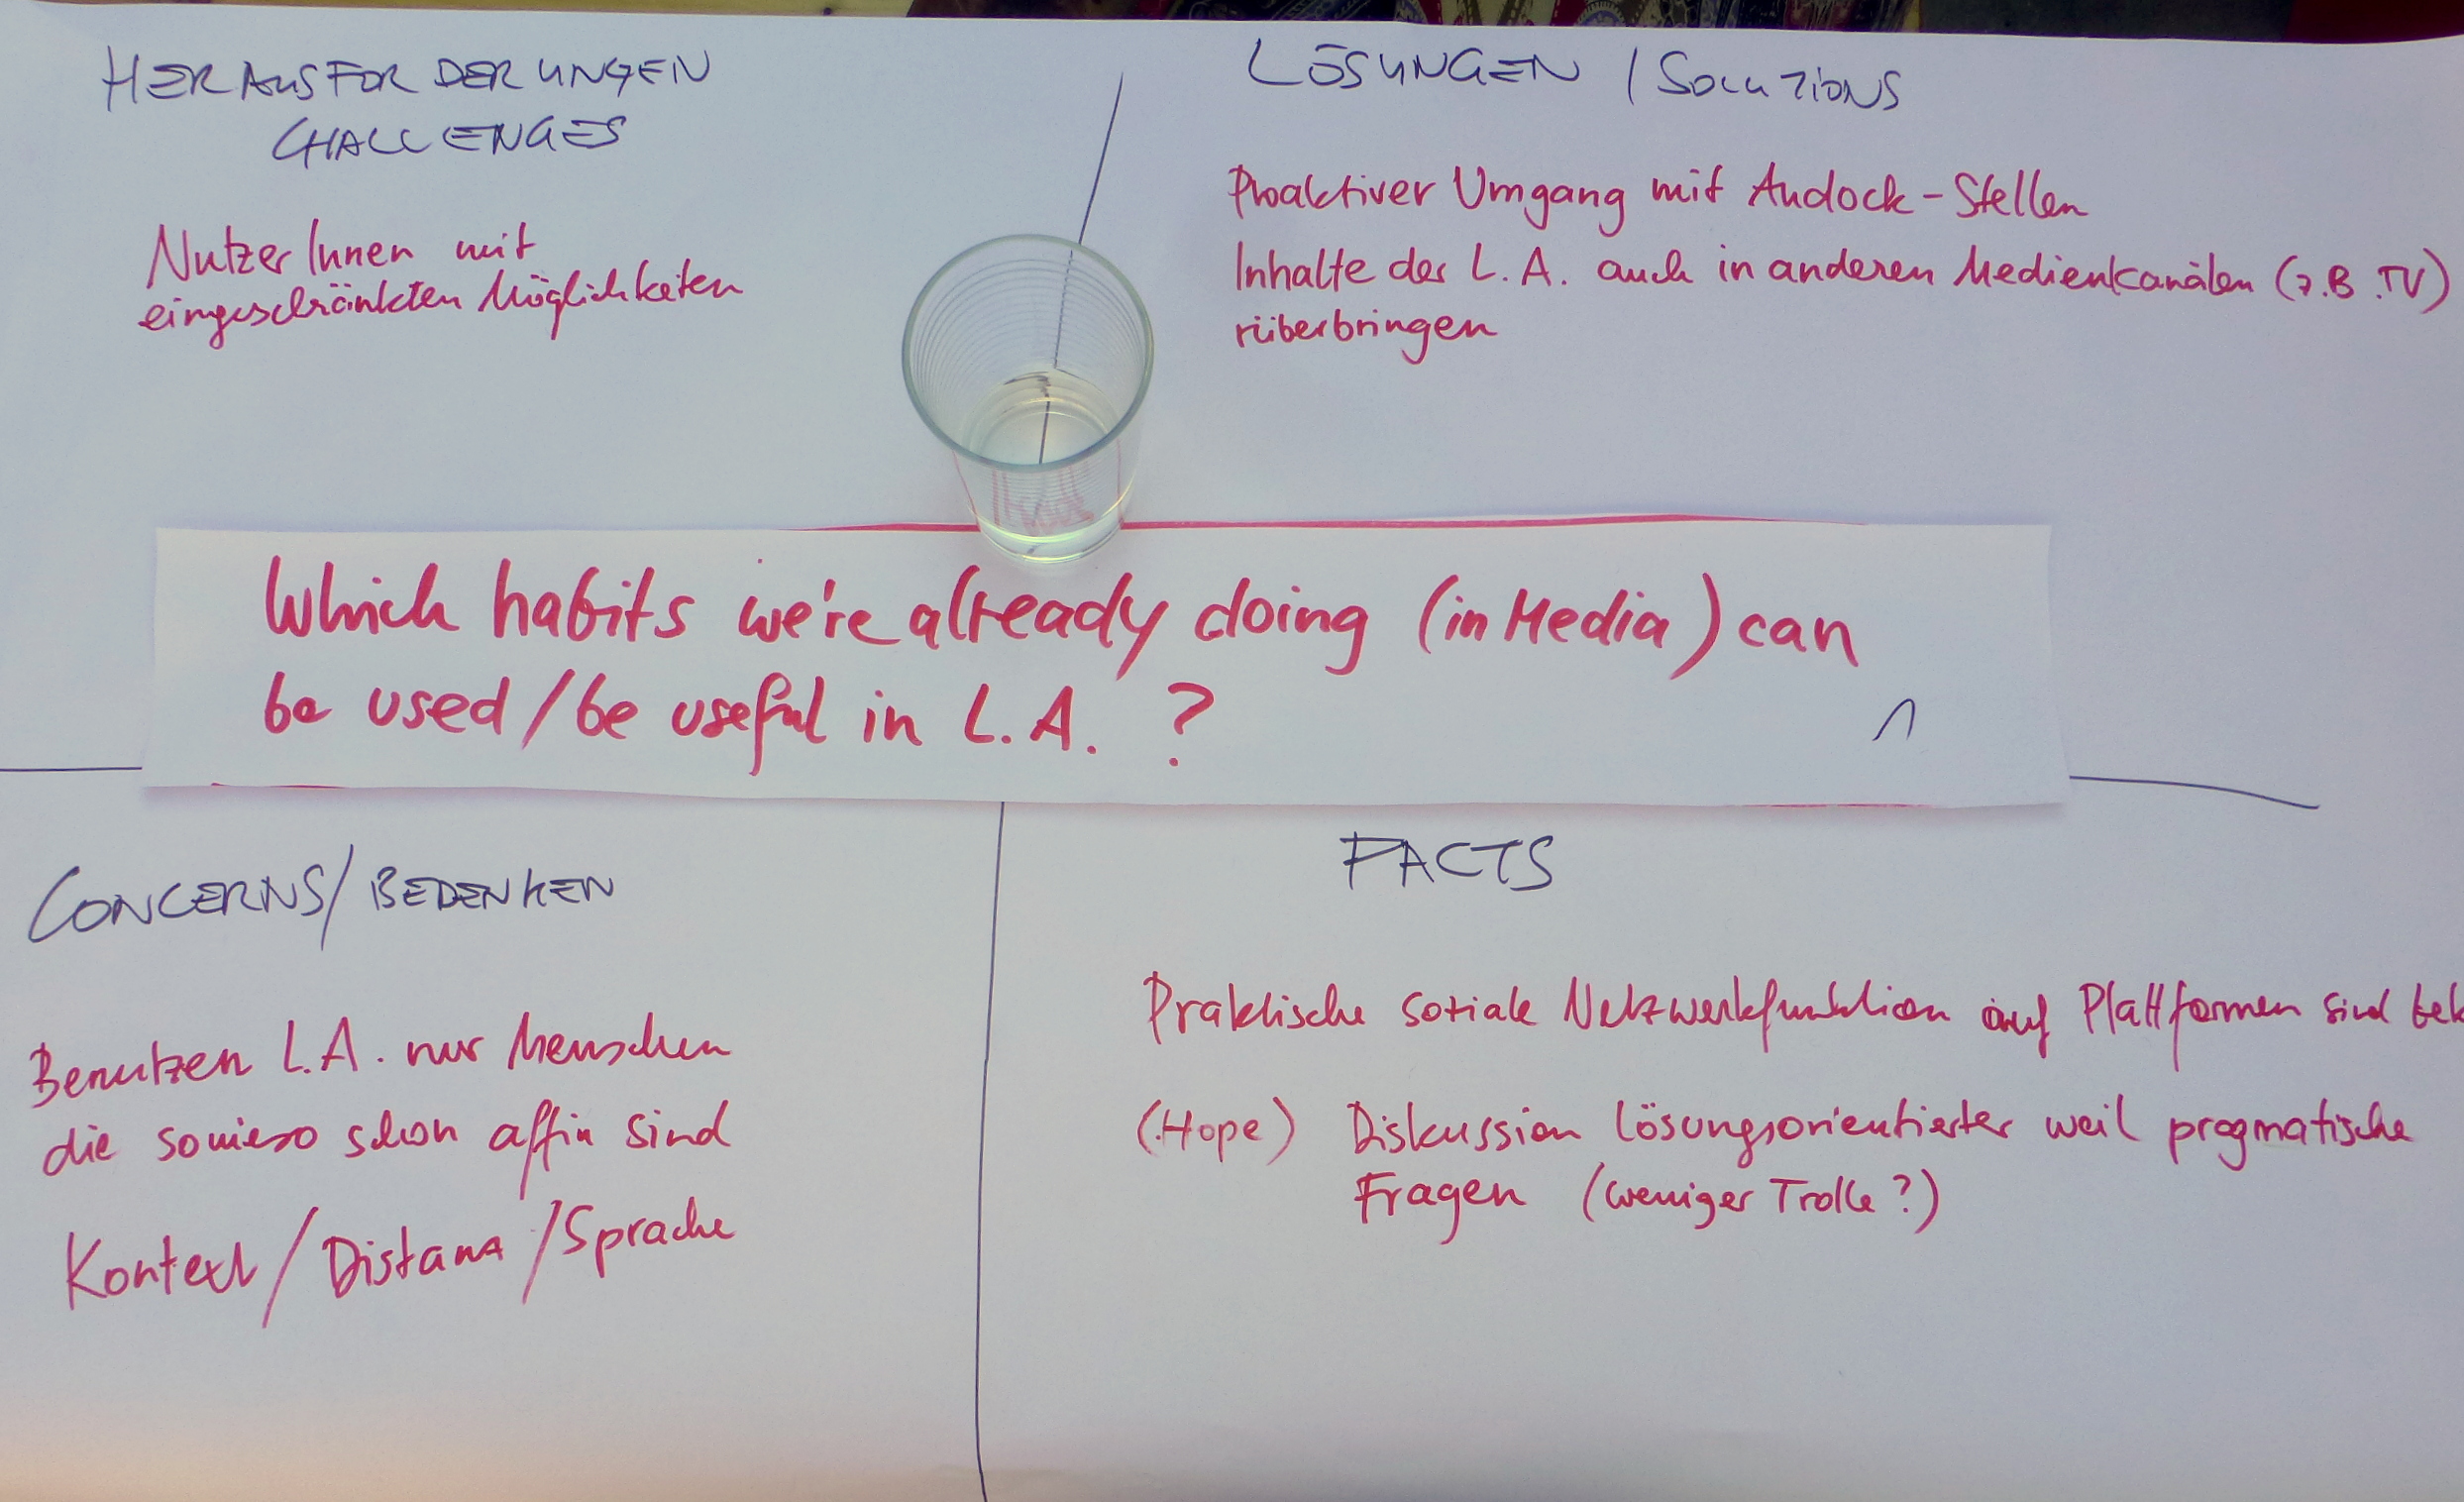 HERAUSFORDERUNGEN
CHALLENGES
NutzerInnen mit
eingeschränkten Möglichkeiten
LÖSUNGEN / SOLUTIONS
Proaktiver Umgang mit Andock-Stellen
Inhalte der L.A. auch in anderen Medienkanälen (z.B. TV)
rüberbringen
Which habits we're already doing (in Media) can
be used/be useful in L.A. ?
CONCERNS/BEDENKEN
Benutzen L.A. nur Menschen
die sowieso schon affin sind
Kontext/Distanz/Sprache
FACTS
Praktische soziale Netzwerkfunktion auf Plattformen sind bek
(Hope) Diskussion lösungsorientierter weil pragmatische
Fragen (weniger Trolle?)